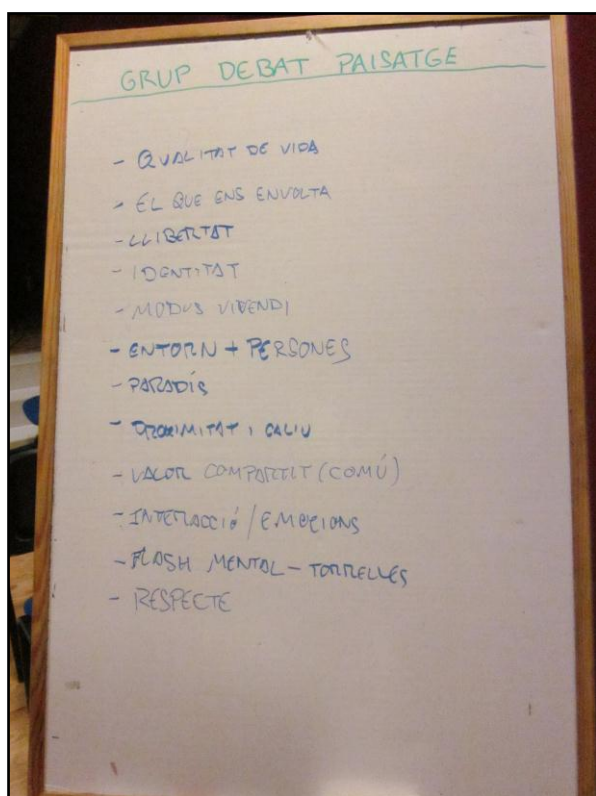 GRUP DEBAT PAISATGE
- QUALITAT DE VIDA
- EL QUE ENS ENVOLTA
- LLIBERTAT
- IDENTITAT
- MODUS VIVENDI
- ENTORN + PERSONES
- PARADÍS
- PROXIMITAT I CALIU
- VALOR COMPARTIT (COMÚ)
- INTERACCIÓ / EMOCIONS
- FLASH MENTAL - TORRELLES
- RESPECTE